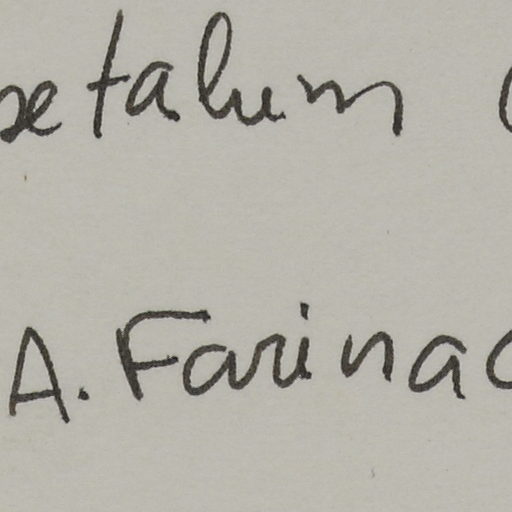 petalum
A. Farinac